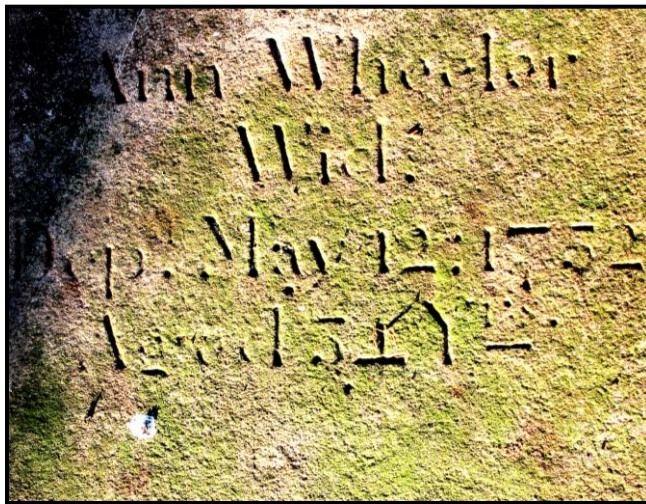 Ann Wheeler
Wid.
Dep. May 12: 1752
Aged 54 Yrs.